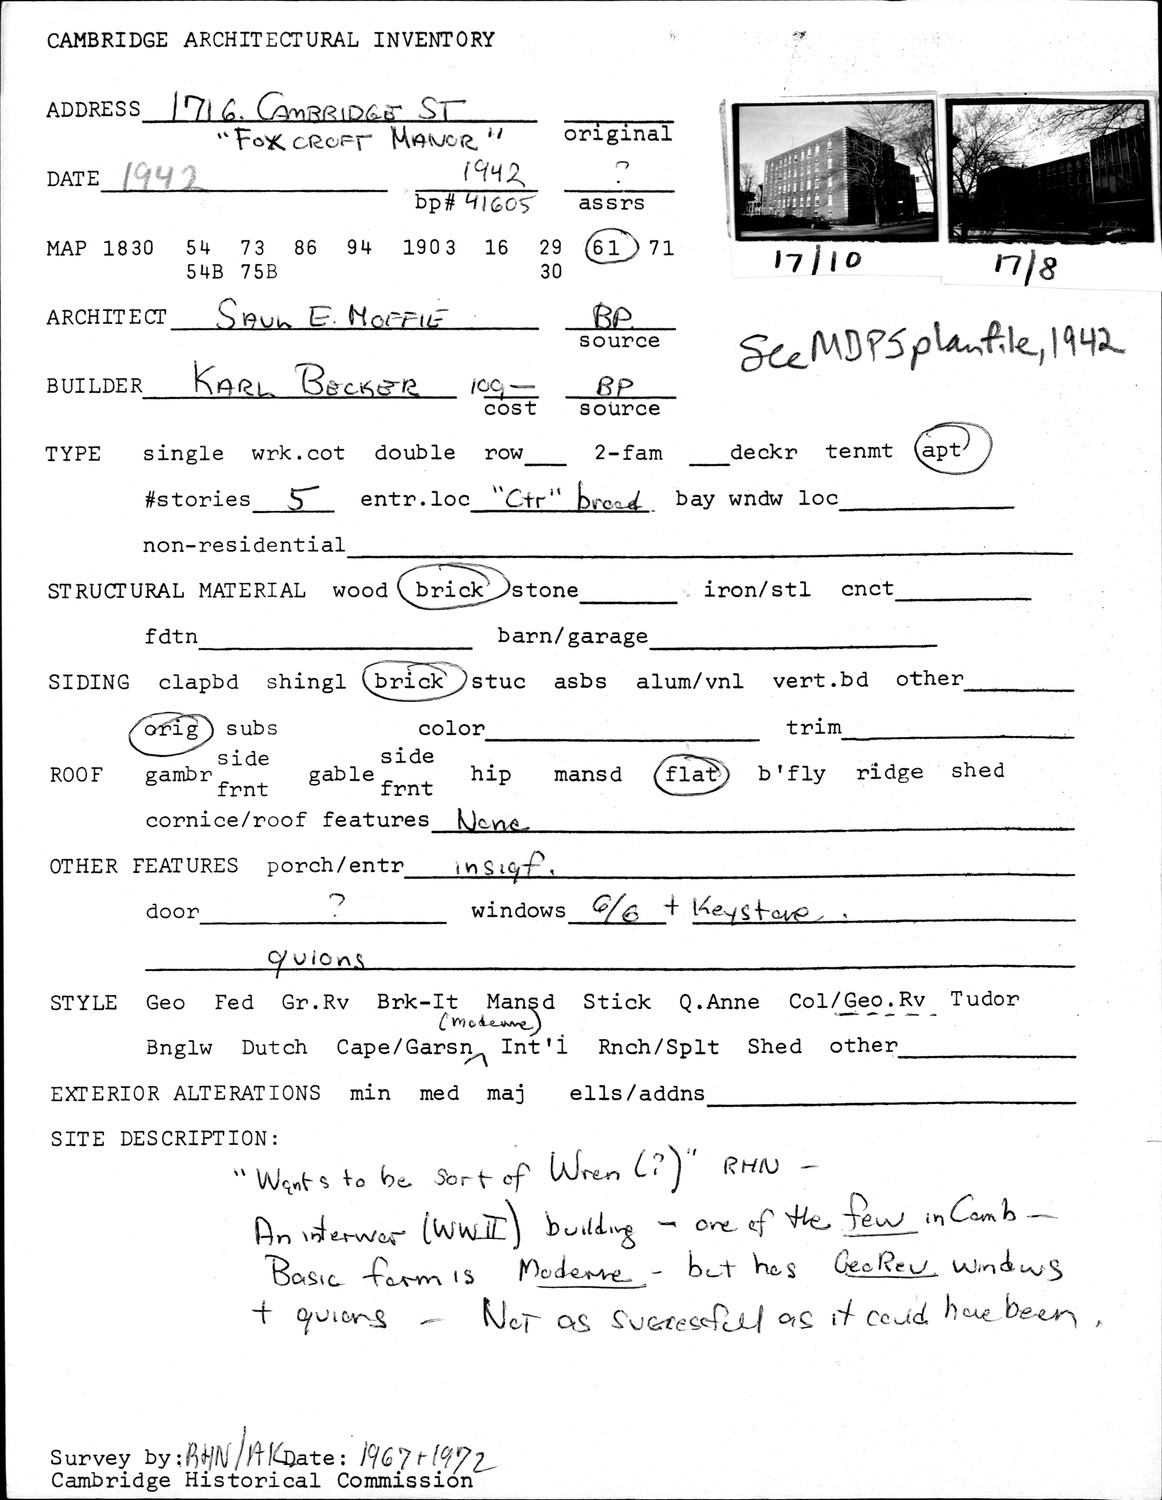 CAMBRIDGE ARCHITECTURAL INVENTORY
ADDRESS 1716. CAMBRIDGE ST
"FOXCROFT MANOR" original
DATE 1942 1942 ?
bp# 41605 assrs
MAP 1830 54 73 86 94 1903 16 29 61 71
54B 75B 30
17/10 17/8
ARCHITECT SAUL E. MOFFIE BP
source
See MDPS planfile, 1942
BUILDER KARL BECKER 100,— BP
cost source
TYPE single wrk.cot double row 2-fam deckr tenmt apt
#stories 5 entr.loc "Ctr" broad bay wndw loc
non-residential
STRUCTURAL MATERIAL wood brick stone iron/stl cnct
fdtn barn/garage
SIDING clapbd shingl brick stuc asbs alum/vnl vert.bd other
orig subs color trim
side side
ROOF gambr gable hip mansd flat b'fly ridge shed
frnt frnt
cornice/roof features None
OTHER FEATURES porch/entr insigf.
door ? windows 6/6 + Keystone.
quions
STYLE Geo Fed Gr.Rv Brk-It Mansd Stick Q.Anne Col/Geo.Rv Tudor
(moderne)
Bnglw Dutch Cape/Garsn Int'i Rnch/Splt Shed other
EXTERIOR ALTERATIONS min med maj ells/addns
SITE DESCRIPTION:
"Wants to be sort of Wren (?)" RHN –
An interwar (WWII) building – one of the few in Camb –
Basic form is Moderne – but has GeoRev windows
+ quions – Not as successfull as it could have been.
Survey by: RHN/AK Date: 1967+1972
Cambridge Historical Commission